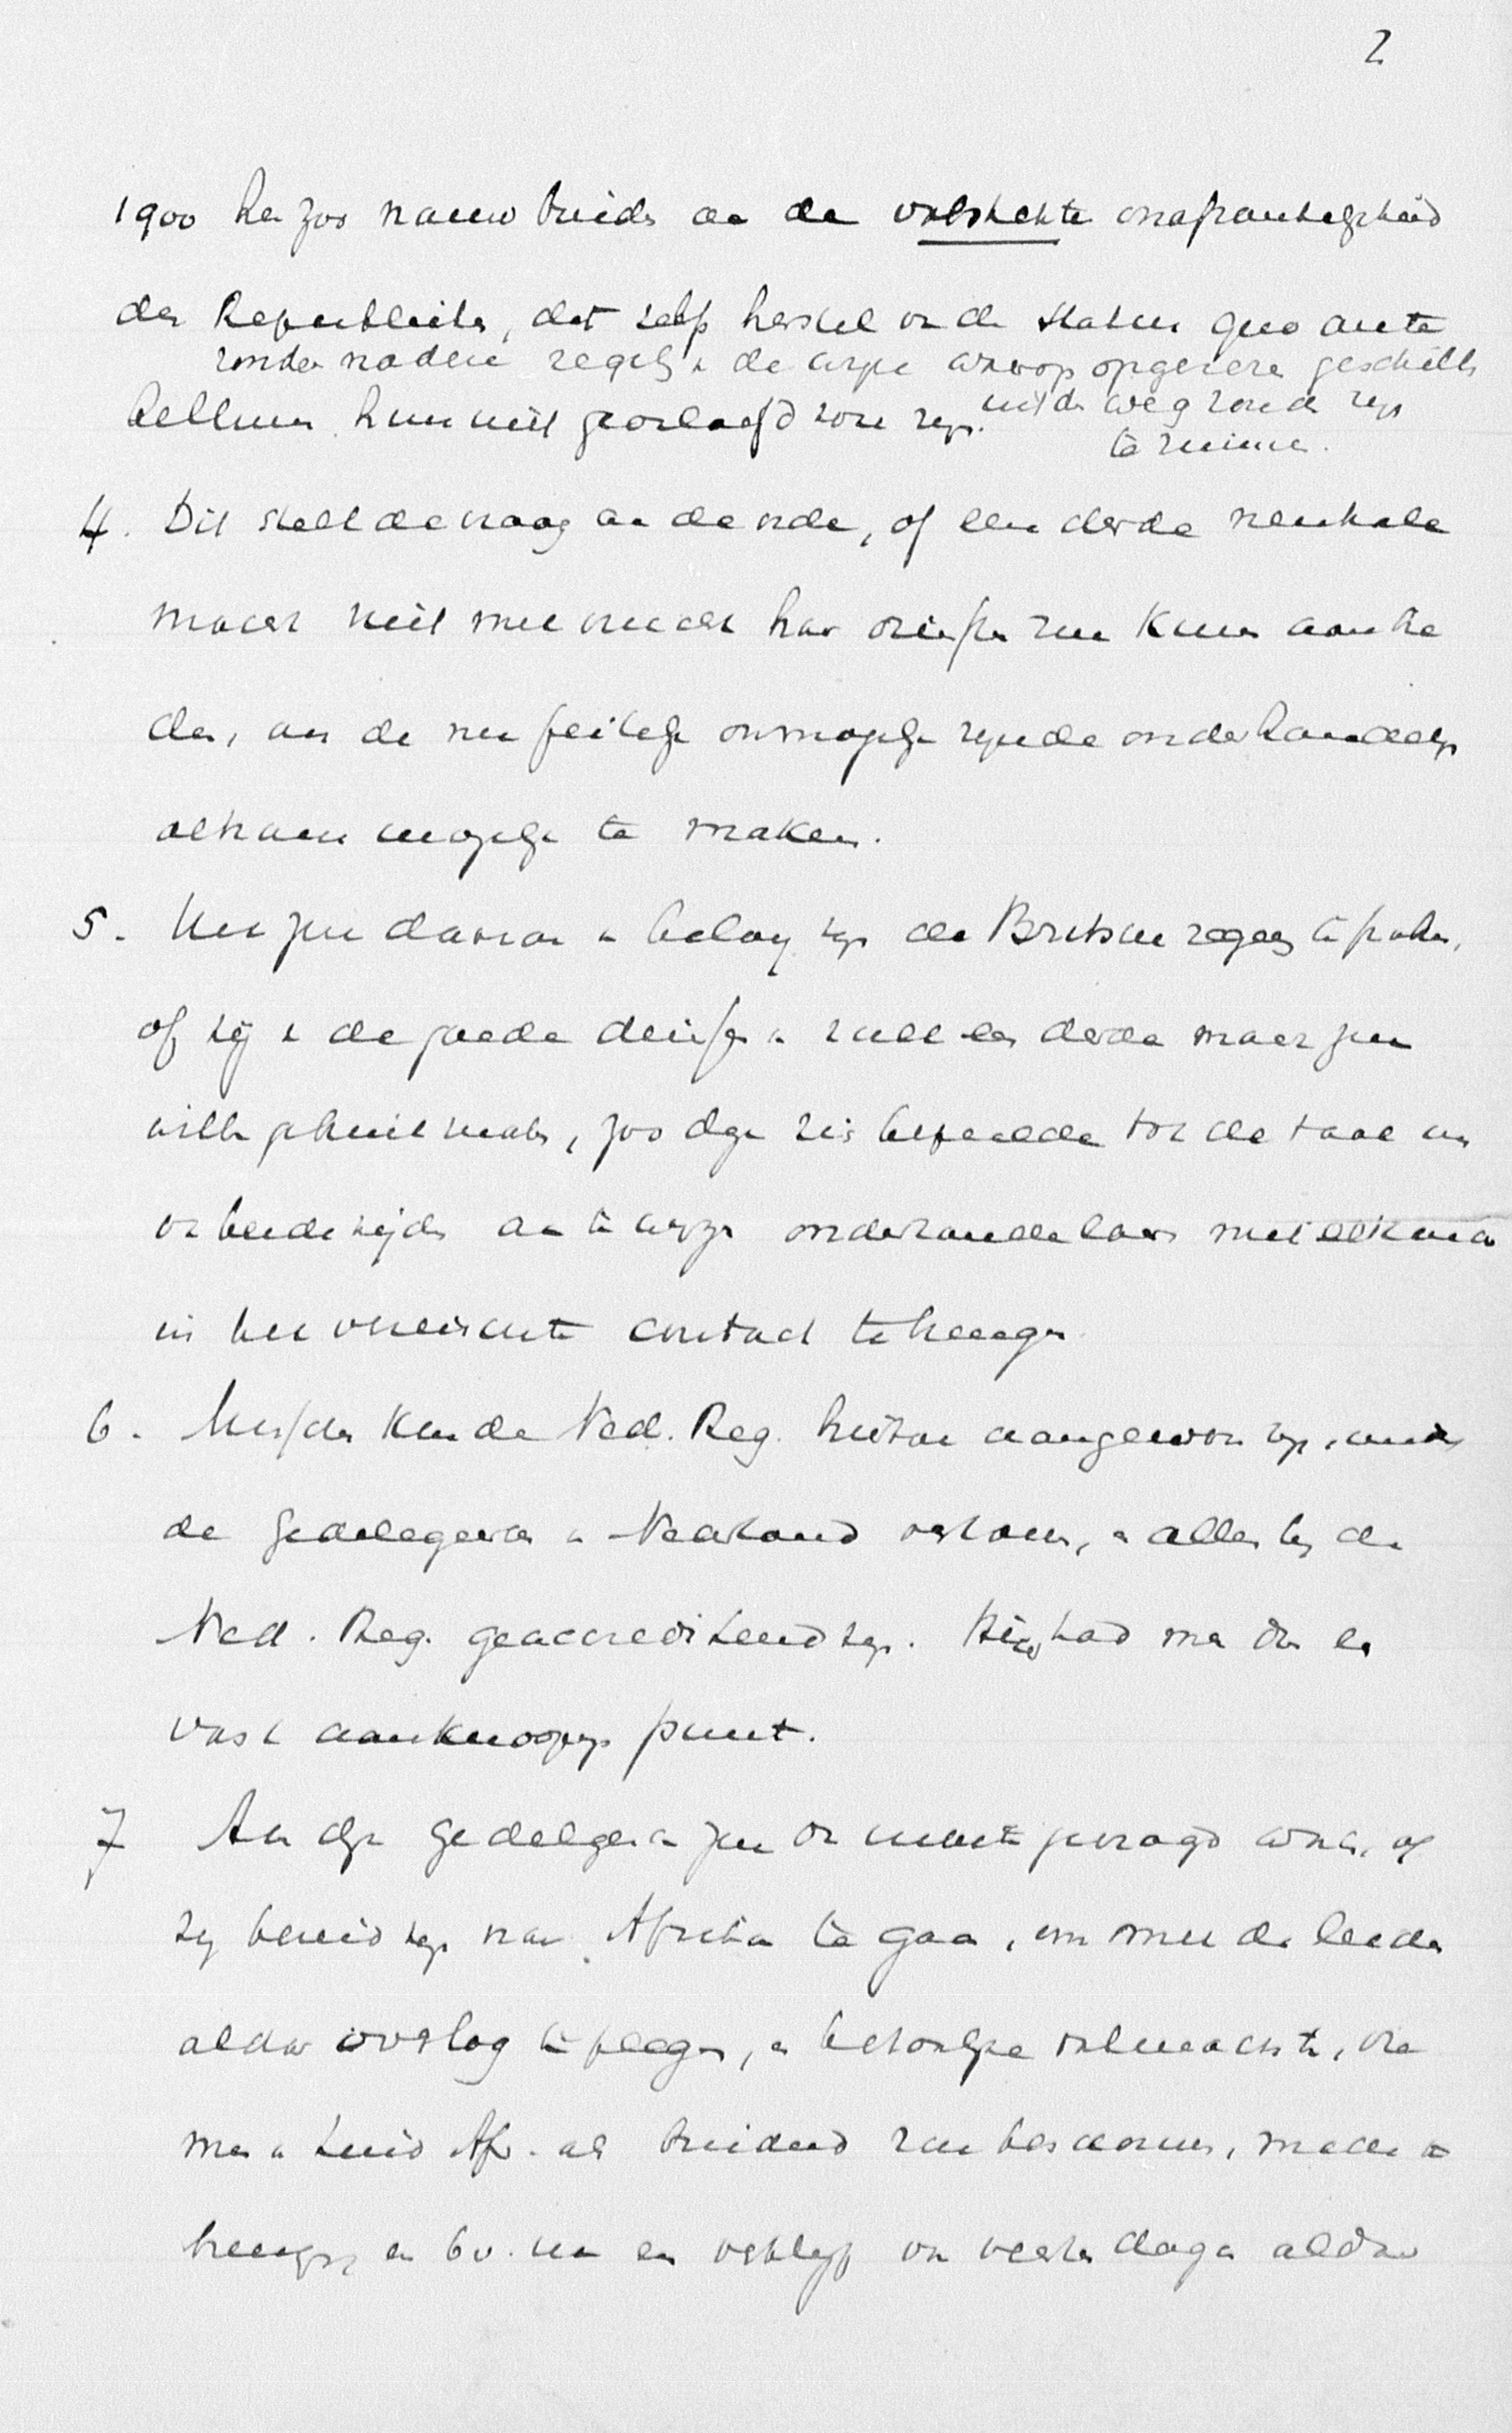 2
1900 hen zoo nauw bindt aan de volstrekte onafhankelijkheid
der Republieken, dat zelfs herstel van de status quo ante
zonder nadere regeling de wijze waarop gerezen geschillen
bellum hun niet geoorloofd zou zijn. uit den weg zouden zijn
te ruimen.
4. Dit stelt de vraag aan de orde, of een derde neutrale
macht niet met vrucht haar diensten zou kunnen aanbie
den, om de nu feitelijk onmogelijk zijnde onderhandeling
althans mogelijk te maken.
5. Het zou daarom van belang zijn de Britsche regeering te polsen,
of zij de goede diensten van zulk een derde macht zou
willen gebruik maken, zoo deze zich bepaalde tot de taak om
van beide zijden aan te wijzen onderhandelaars met elkander
in het vereischte contact te brengen.
6. de Ned. Reg. hiertoe aangewezen zijn, omdat
de gedelegeerden in Nederland vertoeven, en allen bij de
Ned. Reg. geaccrediteerd zijn. Hier had men dus een
vast aanknoopings punt.
7 Aan deze gedelegeerden zou dan moeten gevraagd worden, of
zij bereid zijn naar Afrika te gaan, om met de leiders
aldaar overleg te plegen, en behoorlijke volmachten, die
men in Zuid Afr. als bindend zou beschouwen, mede te
brengen, en bv. na een verblijf van veertien dagen aldaar